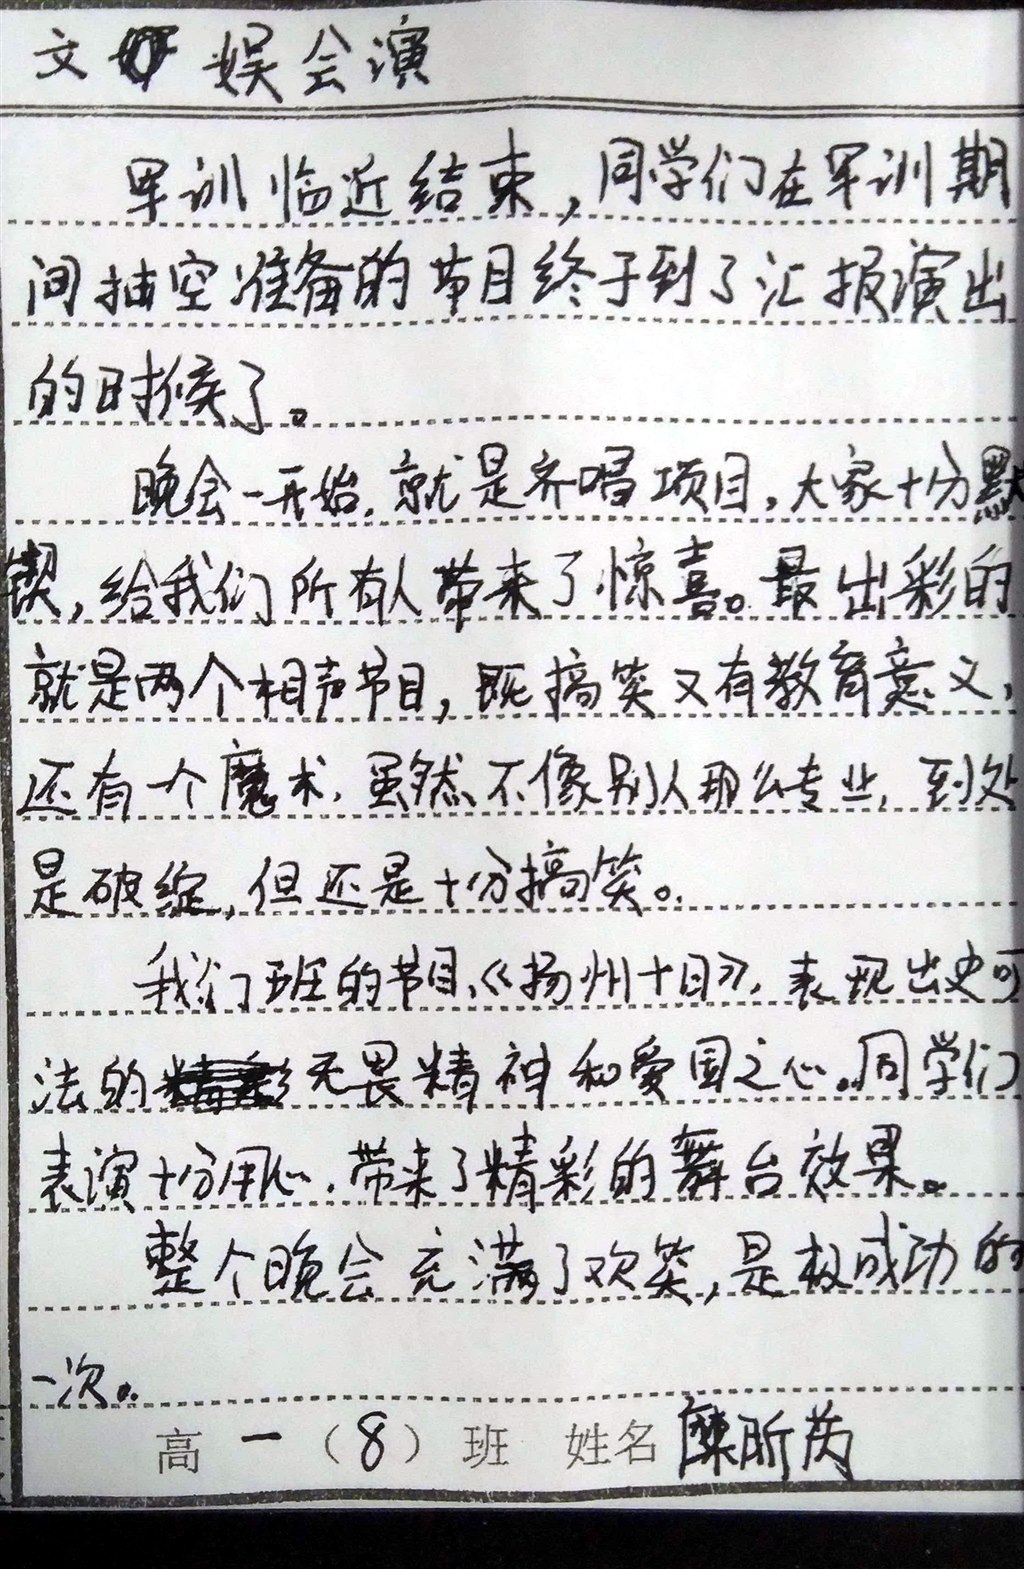 文娱会演
军训临近结束，同学们在军训期
间抽空准备的节目终于到了汇报演出
的时候了。
晚会一开始，就是齐唱项目，大家十分默
契，给我们所有人带来了惊喜。最出彩的
就是两个相声节目，既搞笑又有教育意义，
还有一个魔术，虽然不像别人那么专业，到处
是破绽，但还是十分搞笑。
我们班的节目《扬州十日》，表现出史可
法的无畏精神和爱国之心。同学们
表演十分用心，带来了精彩的舞台效果。
整个晚会充满了欢笑，是极成功的
一次。
高一（8）班 姓名 昕芮